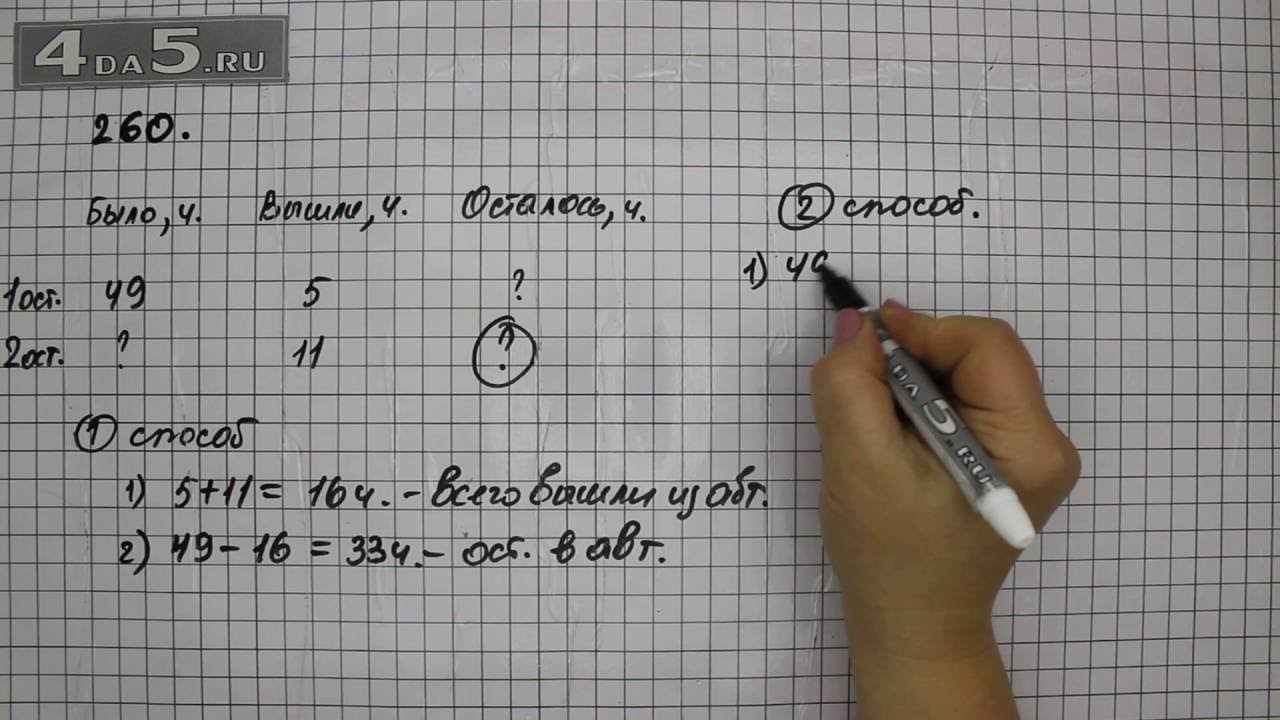 4DA5.RU
260.
Было, ч. Вышли, ч. Осталось, ч.
1ост. 49 5 ?
2ост. ? 11 ?
1 способ
1) 5+11= 16ч. - всего вышли из авт.
2) 49-16 = 33ч. - ост. в авт.
2 способ.
1) 49
DA5.RU